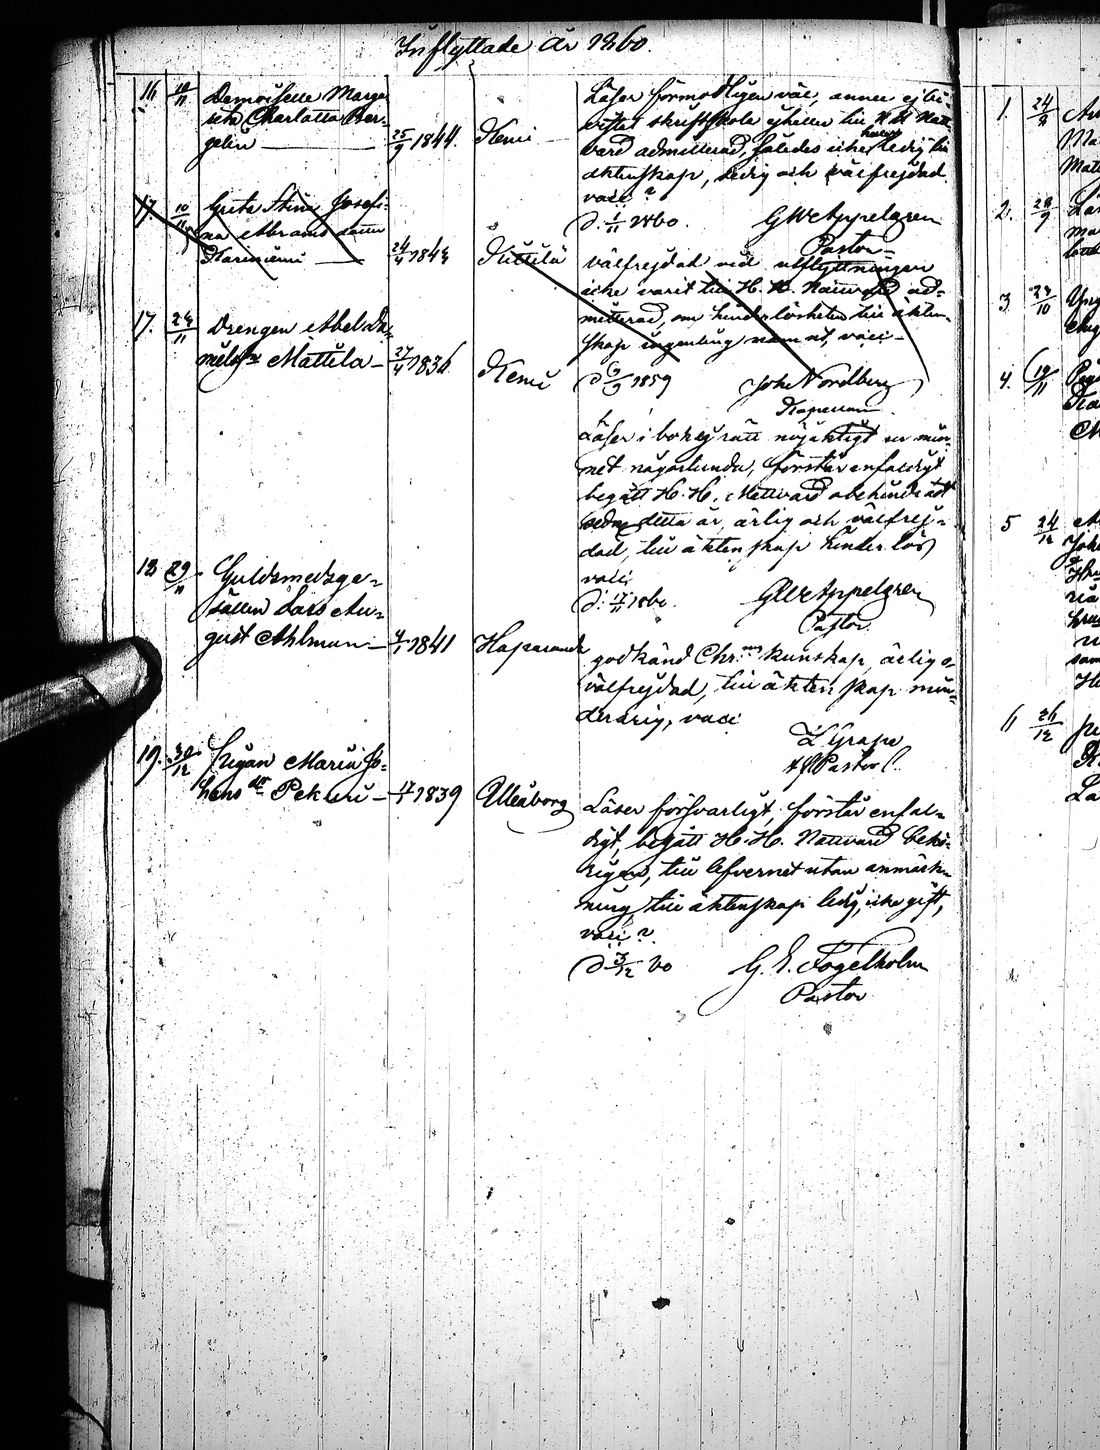 Inflyttade år 1860.
16 10/11 Demoiselle Marga-
reta Charlotta Ber-
gelin 25/9 1844. Kemi
Läser förmodligen väl, annu ej bi-
vistat skriftskola ejheller till H. H. Natt-
vard admitterad, således icke heller ledig till
äktenskap, sedig och välfrejdad
vacc ?
d. 1/11 1860. GW Appelgren
Pastor
17. 10/11 Greta Stina Josefi-
na Abrams dotter
Karinniemi 24/4 1844
välfrejdad vid utflyttningen
icke varit till H. H. Nattvard ad-
mitterad, om hinderlösheten till äkten-
skap ingenting nämnt, vacc
d 6/9 1859 Joh Nordberg
Kapellan
17. 24/11 Drengen Abel Da-
nielsson Mattila 27/4 1836 Kemi
Läser i bok ej rätt nöjaktigt ur min-
net någorlunda, förstår enfaldigt
begått H. H. Nattvard obehindradt
sedan detta år, ärlig och välfrej-
dad, till äktenskap hinderlös
vacc
d. 17/11 1860. GW Appelgren
Pastor
18 29/11 Guldsmedsge-
sällen Lars Au-
gust Ahlman 1841 Haparanda
godkänd Chr. kunskap, ärlig o
välfrejdad, till äktenskap min-
derårig, vacc
Grape
Pastor
19. 30/12 Pigan Maria Jo-
hans dtr Pekkuri 1839 Uleåborg
Läser försvarligt, förstår enfal-
digt, begått H. H. Nattvard behö-
rigen, till lefvernet utan anmärk-
ning, till äktenskap ledig, icke gift,
vacc ?
d. 3/12 60 G. E. Fogelholm
Pastor
1. 24/2
2. 29/9
3. 23/10
4. 19/11
5 24/12
6 26/12